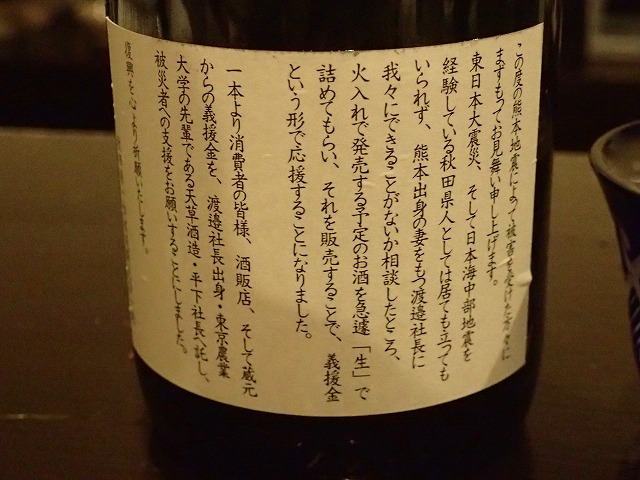 この度の熊本地震によって被害を受けた方々に
まずもってお見舞い申し上げます。
東日本大震災、そして日本海中部地震を
経験している秋田県人としては居ても立っても
いられず、熊本出身の妻をもつ渡邉社長に
我々にできることがないか相談したところ、
火入れで発売する予定のお酒を急遽「生」で
詰めてもらい、それを販売することで、義援金
という形で応援することになりました。
一本より消費者の皆様、酒販店、そして蔵元
からの義援金を、渡邉社長出身・東京農業
大学の先輩である天草酒造・平下社長へ託し、
被災者への支援をお願いすることにしました。
復興を心より祈願いたします。